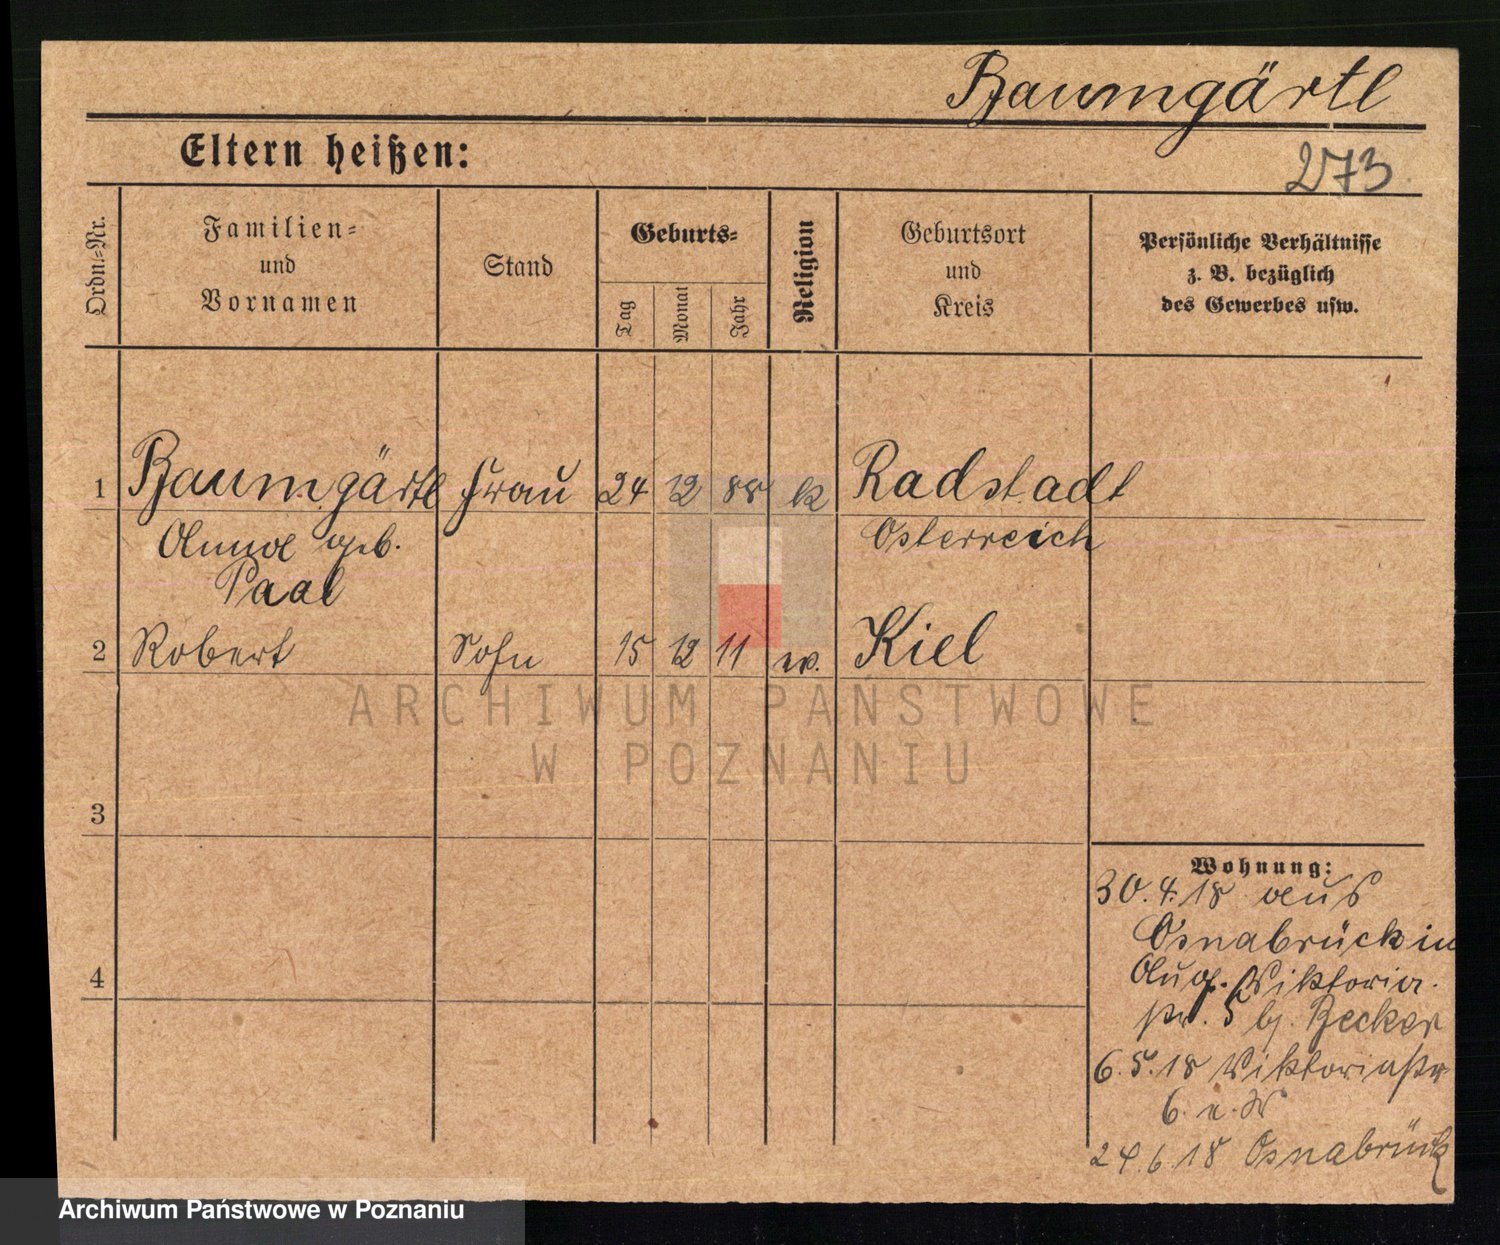 Baumgärtl
Eltern heißen:
273
Ordn.-Nr.
Familien-
und
Vornamen
Stand
Geburts-
Tag
Monat
Jahr
Religion
Geburtsort
und
Kreis
Persönliche Verhältnisse
z. B. bezüglich
des Gewerbes usw.
1 Baumgärtl Frau 24 12 88 k Radstadt
Anna geb. Österreich
Paal
2 Robert Sohn 15 12 11 w. Kiel
ARCHIWUM PAŃSTWOWE
W POZNANIU
3
4
Wohnung:
30.4.18 aus
Osnabrück in
Aug. Viktoria-
str. 5 b. Becker
6.5.18 Viktoriastr
6.
24.6.18 Osnabrück
Archiwum Państwowe w Poznaniu